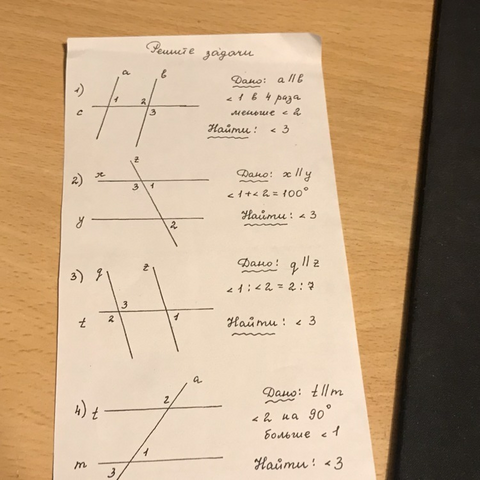 Решите задачи
1) a b
c 1 2 3
Дано: a ∥ b
∠ 1 в 4 раза
меньше ∠ 2
Найти: ∠ 3
2) x z
3 1
y 2
Дано: x ∥ y
∠1 + ∠2 = 100°
Найти: ∠ 3
3) q z
t 2 3 1
Дано: q ∥ z
∠1 : ∠2 = 2 : 7
Найти: ∠ 3
4) t 2 a
m 3 1
Дано: t ∥ m
∠2 на 90°
больше ∠1
Найти: ∠3